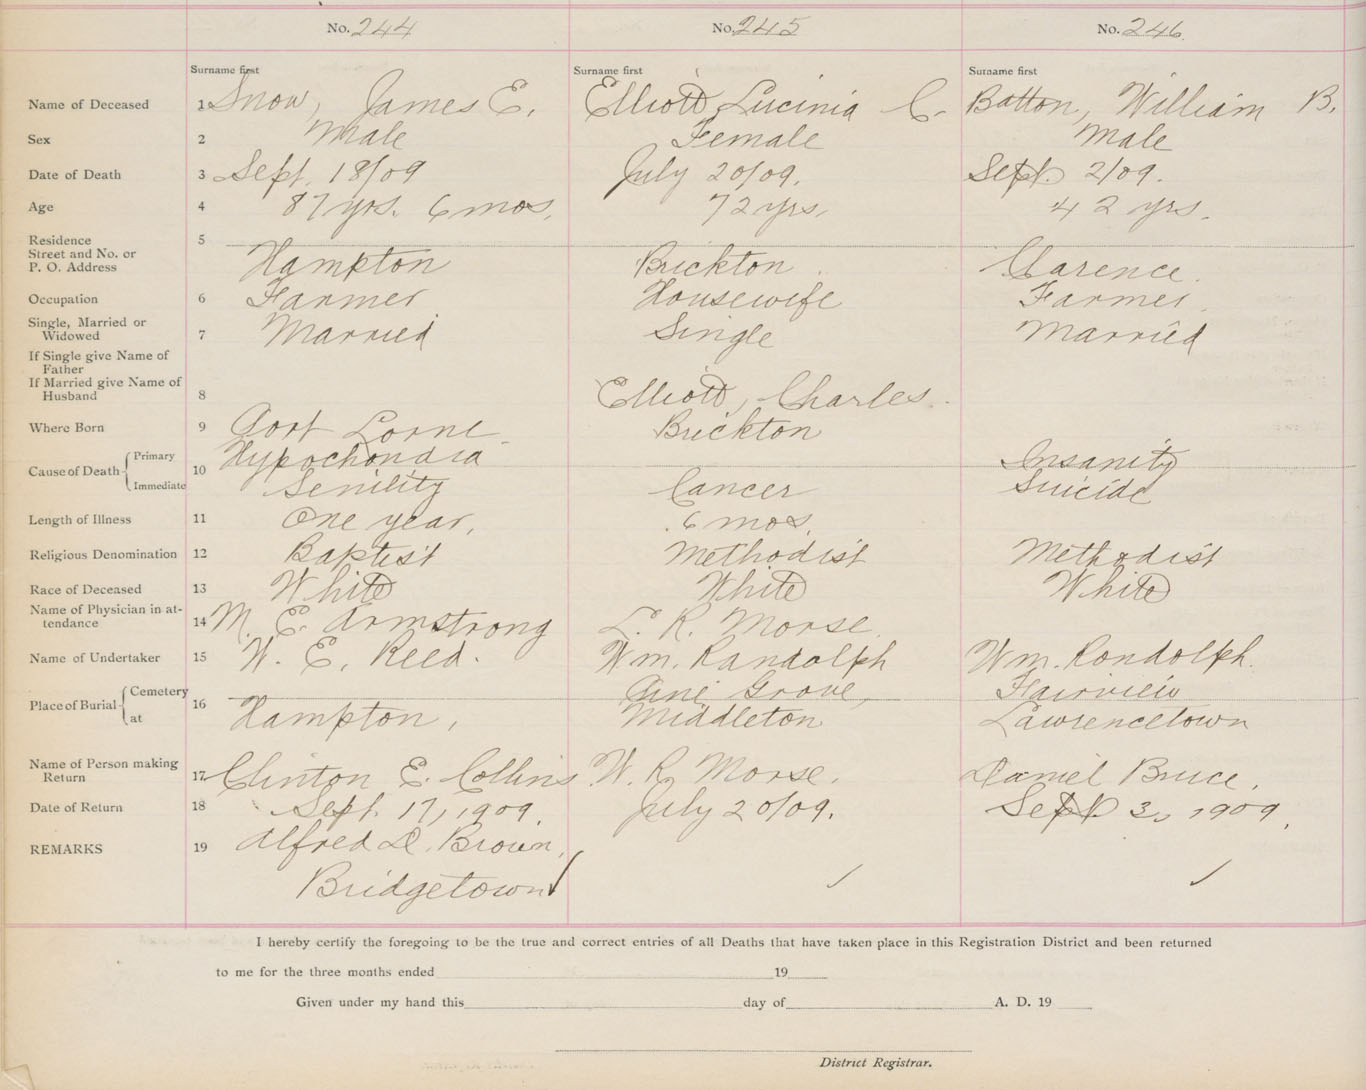 No. 244 No. 245 No. 246
Surname first Surname first Surname first
Name of Deceased 1 Snow, James E. Elliott, Lucinia C. Batton, William B.
Sex 2 Male Female Male
Date of Death 3 Sept. 18/09 July 20/09. Sept. 2/09.
Age 4 87 yrs. 6 mos. 72 yrs. 42 yrs.
Residence 5
Street and No. or
P. O. Address Hampton Brickton Clarence
Occupation 6 Farmer Housewife Farmer
Single, Married or
Widowed 7 Married Single Married
If Single give Name of
Father
If Married give Name of
Husband 8 Elliott, Charles.
Where Born 9 Port Lorne Brickton
Cause of Death Primary 10 Hypochondria Insanity
Immediate Senility Cancer Suicide
Length of Illness 11 One year, 6 mos.
Religious Denomination 12 Baptist Methodist Methodist
Race of Deceased 13 White White White
Name of Physician in at-
tendance 14 M. E. Armstrong L. R. Morse
Name of Undertaker 15 W. E. Reed. Wm. Randolph Wm. Randolph.
Place of Burial Cemetery 16 Pine Grove, Fairview
at Hampton, Middleton Lawrencetown
Name of Person making
Return 17 Clinton E. Collins W. R. Morse. Daniel Bruce.
Date of Return 18 Sept. 17, 1909. July 20/09. Sept. 3, 1909.
REMARKS 19 Alfred D. Brown,
Bridgetown
I hereby certify the foregoing to be the true and correct entries of all Deaths that have taken place in this Registration District and been returned
to me for the three months ended 19
Given under my hand this day of A. D. 19
District Registrar.